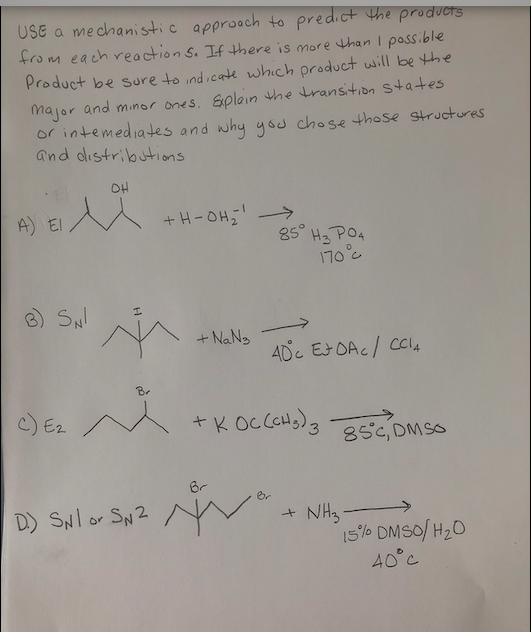 USE a mechanistic approach to predict the products
from each reactions. If there is more than 1 possible
Product be sure to indicate which product will be the
major and minor ones. Explain the transition states
or intemediates and why you chose those structures
and distributions
OH
A) E1 + H-OH2 -1 →
85° H3PO4
170°C
B) SN1 I + NaN3 →
40°C EtOAc / CCl4
Br
C) E2 + KOC(CH3)3 →
85°C, DMSO
Br
Br
D.) SN1 or SN2 + NH3 →
15% DMSO/H2O
40°C